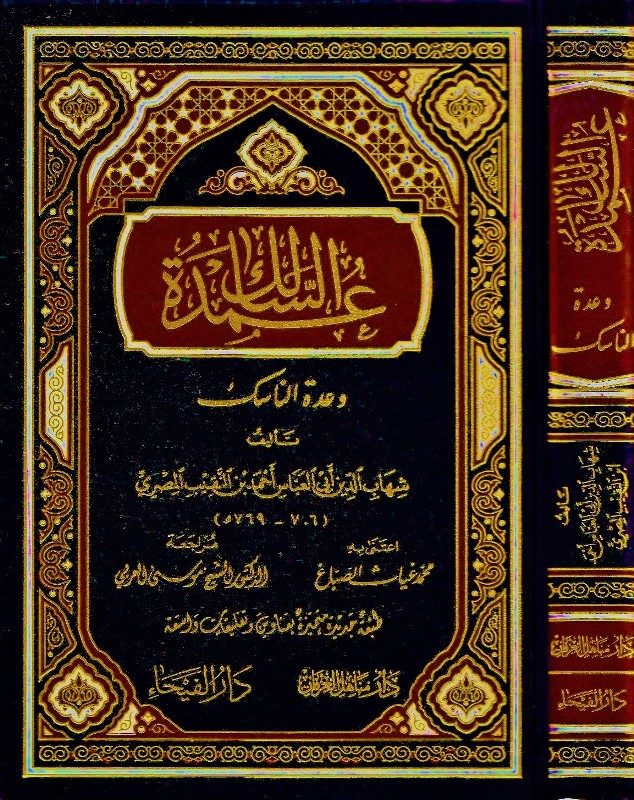 عمدة السالك
وعدة الناسك
تأليف
شهاب الدين أبي العباس أحمد بن النقيب المصري
(٧٠٦ - ٧٦٩ هـ)
اعتنى به
مراجعة
محمد غياث الصباغ
الدكتور الشيخ موسى
طبعة جديدة مميزة بعناوين وتعليقات واسعة
دار مناهل العرفان
دار الفيحاء
عمدة السالك
وعدة
الناسك
تأليف
شهاب الدين أبي العباس أحمد
ابن النقيب المصري
دار مناهل العرفان
دار الفيحاء